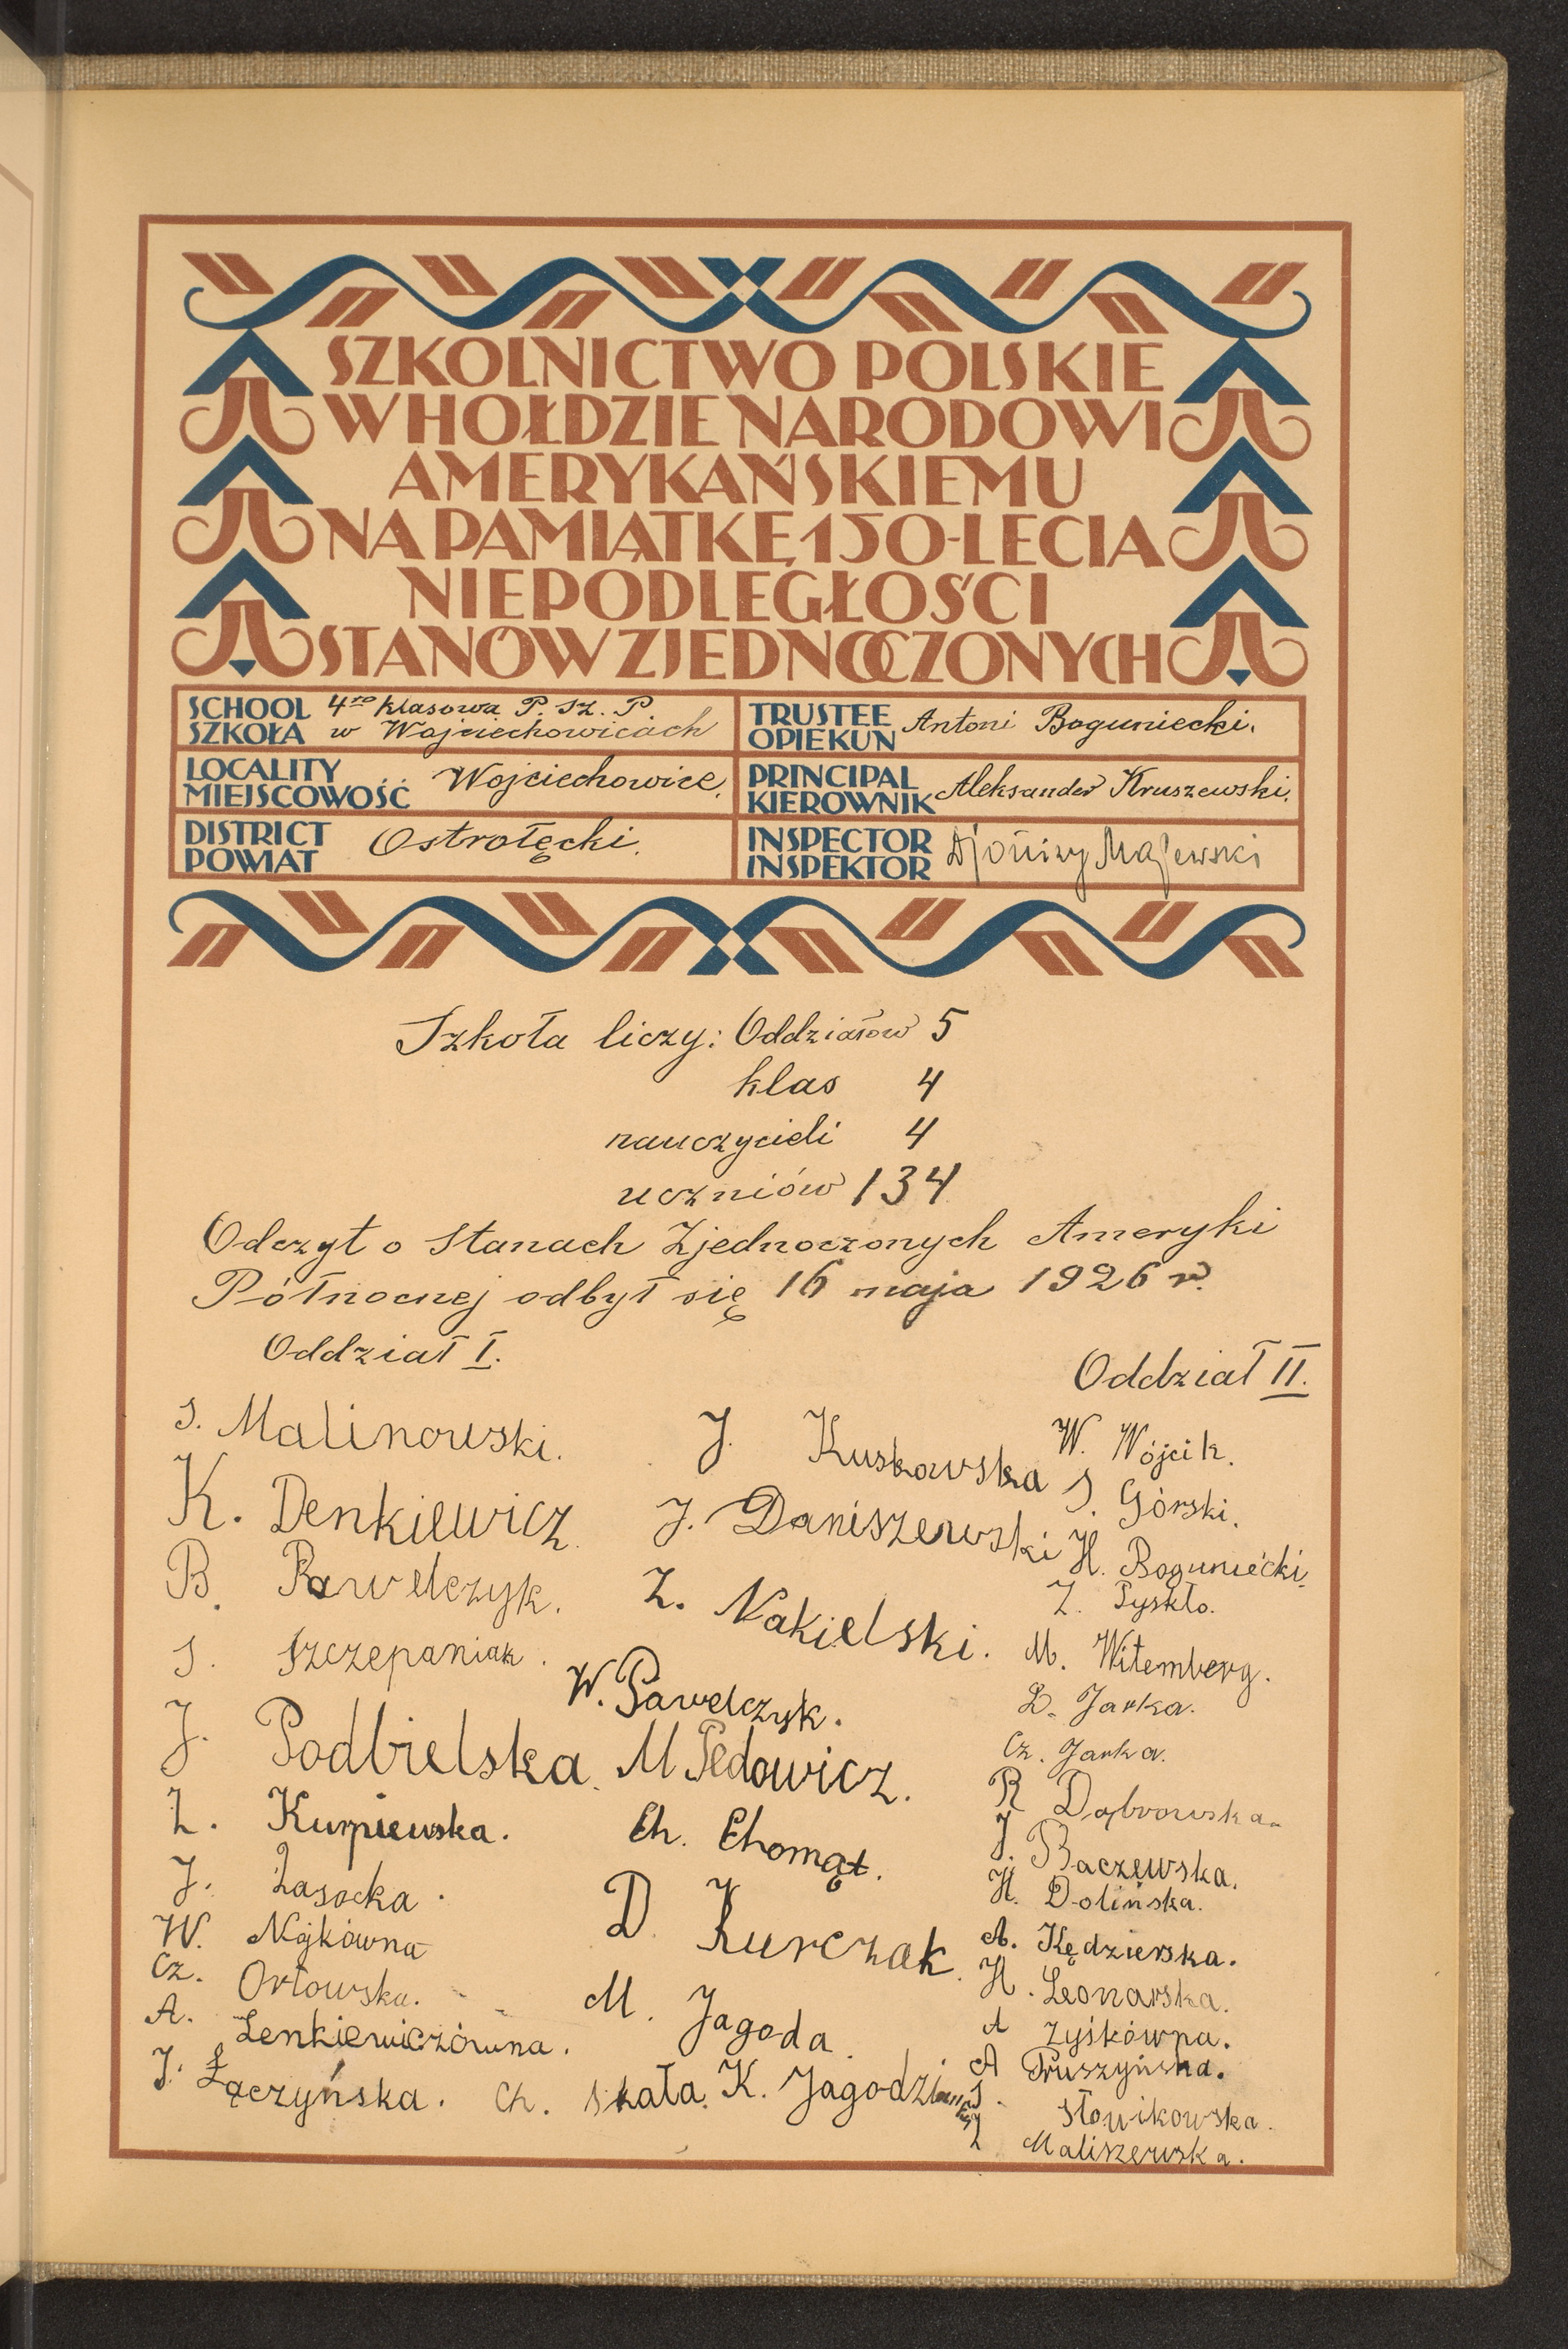 SZKOLNICTWO POLSKIE
W HOŁDZIE NARODOWI
AMERYKAŃSKIEMU
NA PAMIĄTKĘ 150-LECIA
NIEPODLEGŁOŚCI
STANÓW ZJEDNOCZONYCH
SCHOOL SZKOŁA 4ro klasowa P. Sz. P
w Wojciechowicach
TRUSTEE OPIEKUN Antoni Boguniecki.
LOCALITY MIEJSCOWOŚĆ Wojciechowice.
PRINCIPAL KIEROWNIK Aleksander Kruszewski.
DISTRICT POWIAT Ostrołęcki.
INSPECTOR INSPEKTOR Majewski
Szkoła liczy: Oddziałów 5
klas 4
nauczycieli 4
uczniów 134
Odczyt o Stanach Zjednoczonych Ameryki
Północnej odbył się 16 maja 1926 r.
Oddział I.
S. Malinowski.
K. Denkiewicz.
B. Pawelczyk.
S. Szczepaniak.
J. Podbielska.
Z. Kurpiewska.
J. Łasocka.
W. Nojkówna
Cz. Orłowska.
A. Lenkiewiczówna.
J. Łączyńska.
J. Kuskowska
J. Daniszewski
Z. Nakielski.
W. Pawelczyk.
M Pedowicz.
Ch. Chomąt.
D. Kurczak.
M. Jagoda.
Ch. Skała.
K. Jagodziński
Oddział II.
W. Wójcik.
S. Górski.
H. Boguniecki.
Z. Pyskło.
M. Witemberg.
L. Jarka.
Cz. Jarka.
R Dąbrowska.
J. Baczewska.
H. Dolińska.
A. Kędzierska.
H. Leonarska.
A Zyśkówna.
A Pruszyńska.
J. Słowikowska.
Z Maliszewska.